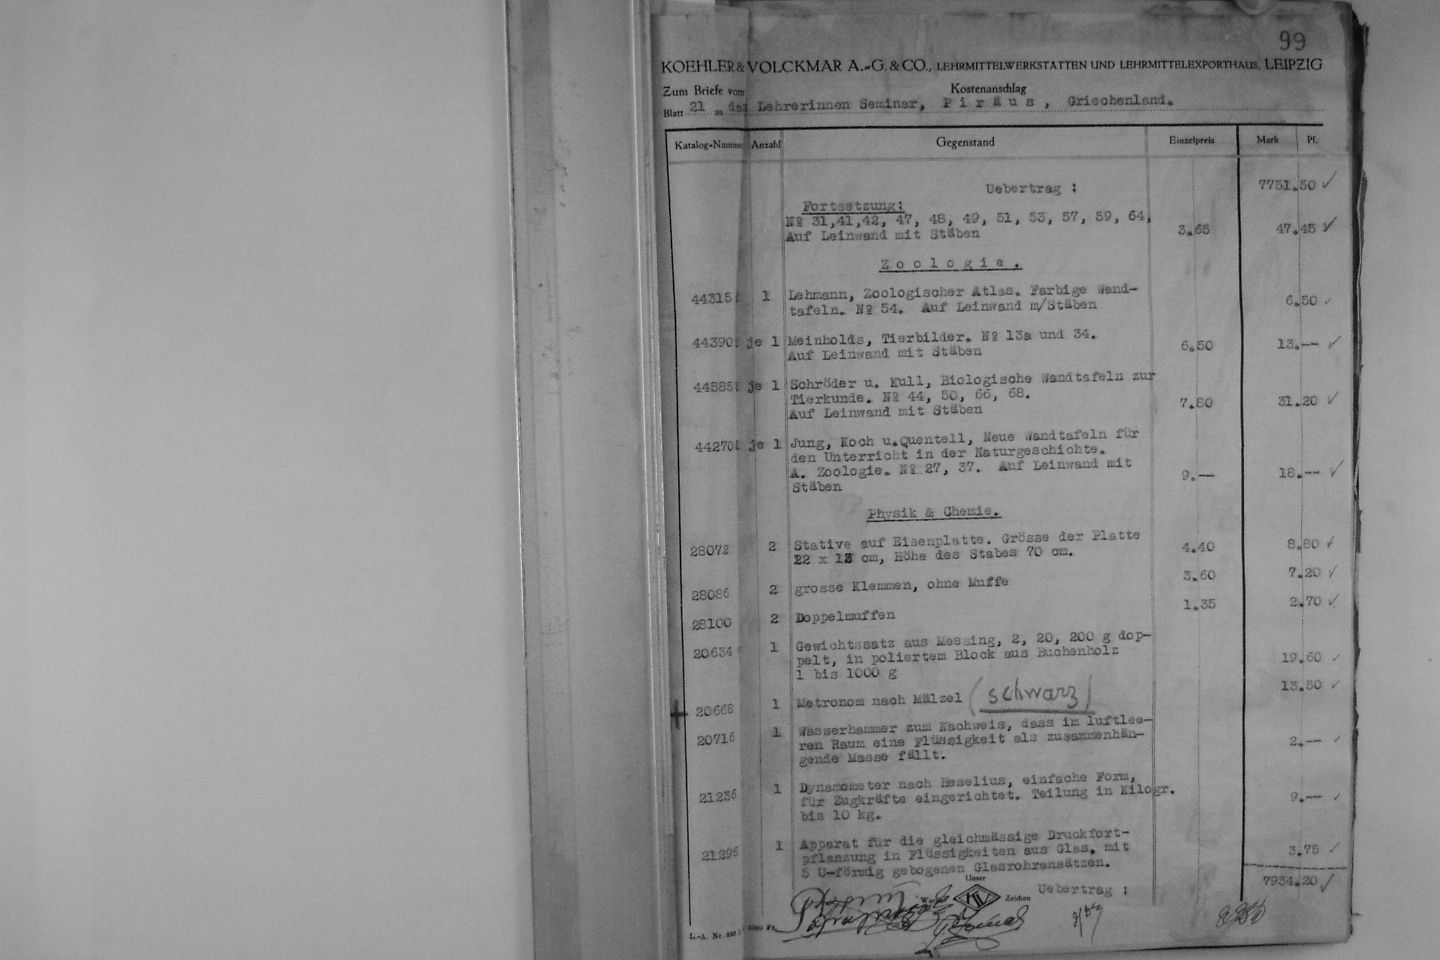 99
KOEHLER & VOLCKMAR A.-G. & CO., LEHRMITTELWERKSTÄTTEN UND LEHRMITTELEXPORTHAUS, LEIPZIG
Zum Briefe vom Kostenanschlag
Blatt 21 an das Lehrerinnen Seminar, Piräus, Griechenland.
Katalog-Nummer Anzahl Gegenstand Einzelpreis Mark Pf.
Uebertrag : 7751.50 ✓
Fortsetzung:
Nº 31,41,42, 47, 48, 49, 51, 53, 57, 59, 64,
Auf Leinwand mit Stäben 3.65 47.45 ✓
Zoologie.
44315 1 Lehmann, Zoologischer Atlas. Farbige Wand-
tafeln. Nº 54. Auf Leinwand m/Stäben 6.50 ✓
44390 je 1 Meinholds, Tierbilder. Nº 13a und 34.
Auf Leinwand mit Stäben 6.50 13.-- ✓
44585 je 1 Schröder u. Kull, Biologische Wandtafeln zur
Tierkunde. Nº 44, 50, 66, 68.
Auf Leinwand mit Stäben 7.80 31.20 ✓
44270 je 1 Jung, Koch u.Quentell, Neue Wandtafeln für
den Unterricht in der Naturgeschichte.
A. Zoologie. Nº 27, 37. Auf Leinwand mit
Stäben 9.-- 18.-- ✓
Physik & Chemie.
28072 2 Stative auf Eisenplatte. Grösse der Platte
22 x 13 cm, Höhe des Stabes 70 cm. 4.40 8.80 ✓
28086 2 grosse Klemmen, ohne Muffe 3.60 7.20 ✓
28100 2 Doppelmuffen 1.35 2.70 ✓
20634 1 Gewichtssatz aus Messing, 2, 20, 200 g dop-
pelt, in poliertem Block aus Buchenholz
1 bis 1000 g 19.60 ✓
20668 1 Metronom nach Mälzel (schwarz) 13.50 ✓
20716 1 Wasserhammer zum Nachweis, dass im luftlee-
ren Raum eine Flüssigkeit als zusammenhän-
gende Masse fällt. 2.-- ✓
21236 1 Dynamometer nach Heselius, einfache Form,
für Zugkräfte eingerichtet. Teilung in Kilogr.
bis 10 kg. 9.-- ✓
21296 1 Apparat für die gleichmässige Druckfort-
pflanzung in Flüssigkeiten aus Glas. mit
5 U-förmig gebogenen Glasrohransätzen. 3.75 ✓
Uebertrag : 7934.20 ✓
Unser
Zeichen
L.-A. Nr.